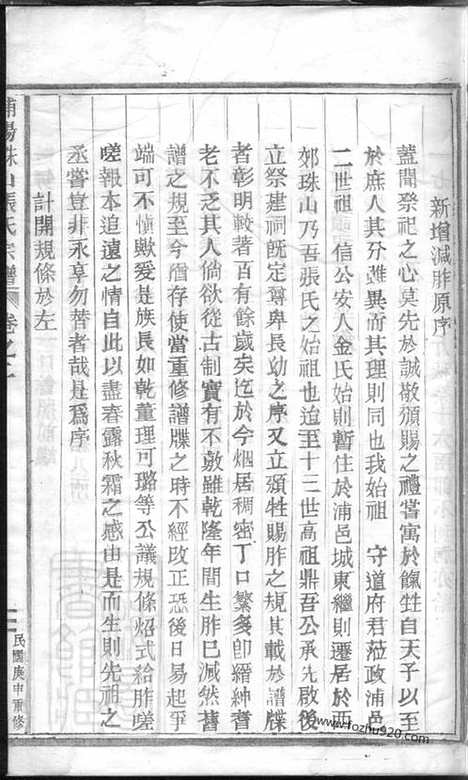 新增減胙原序
蓋聞祭祀之心莫先於誠敬頒賜之禮嘗寓於餼牲自天子以至
於庶人其分雖異而其理則同也我始祖 守道府君蒞政浦邑
二世祖 信公安人金氏始則暫住於浦邑城東繼則遷居於西
郊珠山乃吾張氏之始祖也迨至十三世高祖鼎吾公承先啟後
立祭建祠既定尊卑長幼之序又立頒牲賜胙之規其載於譜牒
者彰明較著百有餘歲矣迄於今烟居稠密丁口繁多即縉紳耆
老不乏其人倘欲從古制實有不敷雖乾隆年間生胙已減然舊
譜之規至今猶存使當重修譜牒之時不經改正恐後日易起爭
端可不慎歟爰是族長如乾董理可璐等公議規條炤式給胙嗟
嗟報本追遠之情自此以盡春露秋霜之感由是而生則先祖之
烝嘗豈非永享勿替者哉是為序
計開規條於左
浦陽珠山張氏宗譜
卷之二
民國庚申重修
www.fozhu920.com